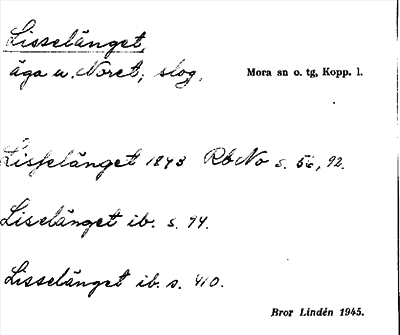 Lisselänget,
äga u. Noret; slog. Mora sn o. tg, Kopp. l.
Lisselänget 1843 RbNo s. 56, 92.
Liselänget ib. s. 94.
Lisselänget ib. s. 410.
Bror Lindén 1945.